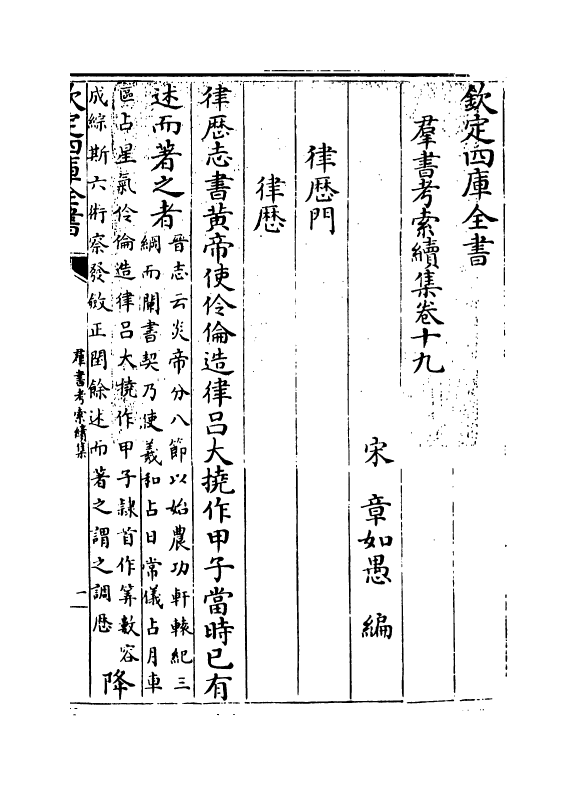 欽定四庫全書
羣書考索續集卷十九
宋 章如愚 編
律厯門
律厯
律厯志書黄帝使伶倫造律吕大撓作甲子當時已有
述而著之者
晋志云炎帝分八節以始農功軒轅紀三
綱而闡書契乃使羲和占日常儀占月車
區占星氣伶倫造律吕大撓作甲子隷首作筭數容
成綜斯六術察發斂正閏餘述而著之謂之調厯
降
欽定四庫全書
羣書考索續集
一